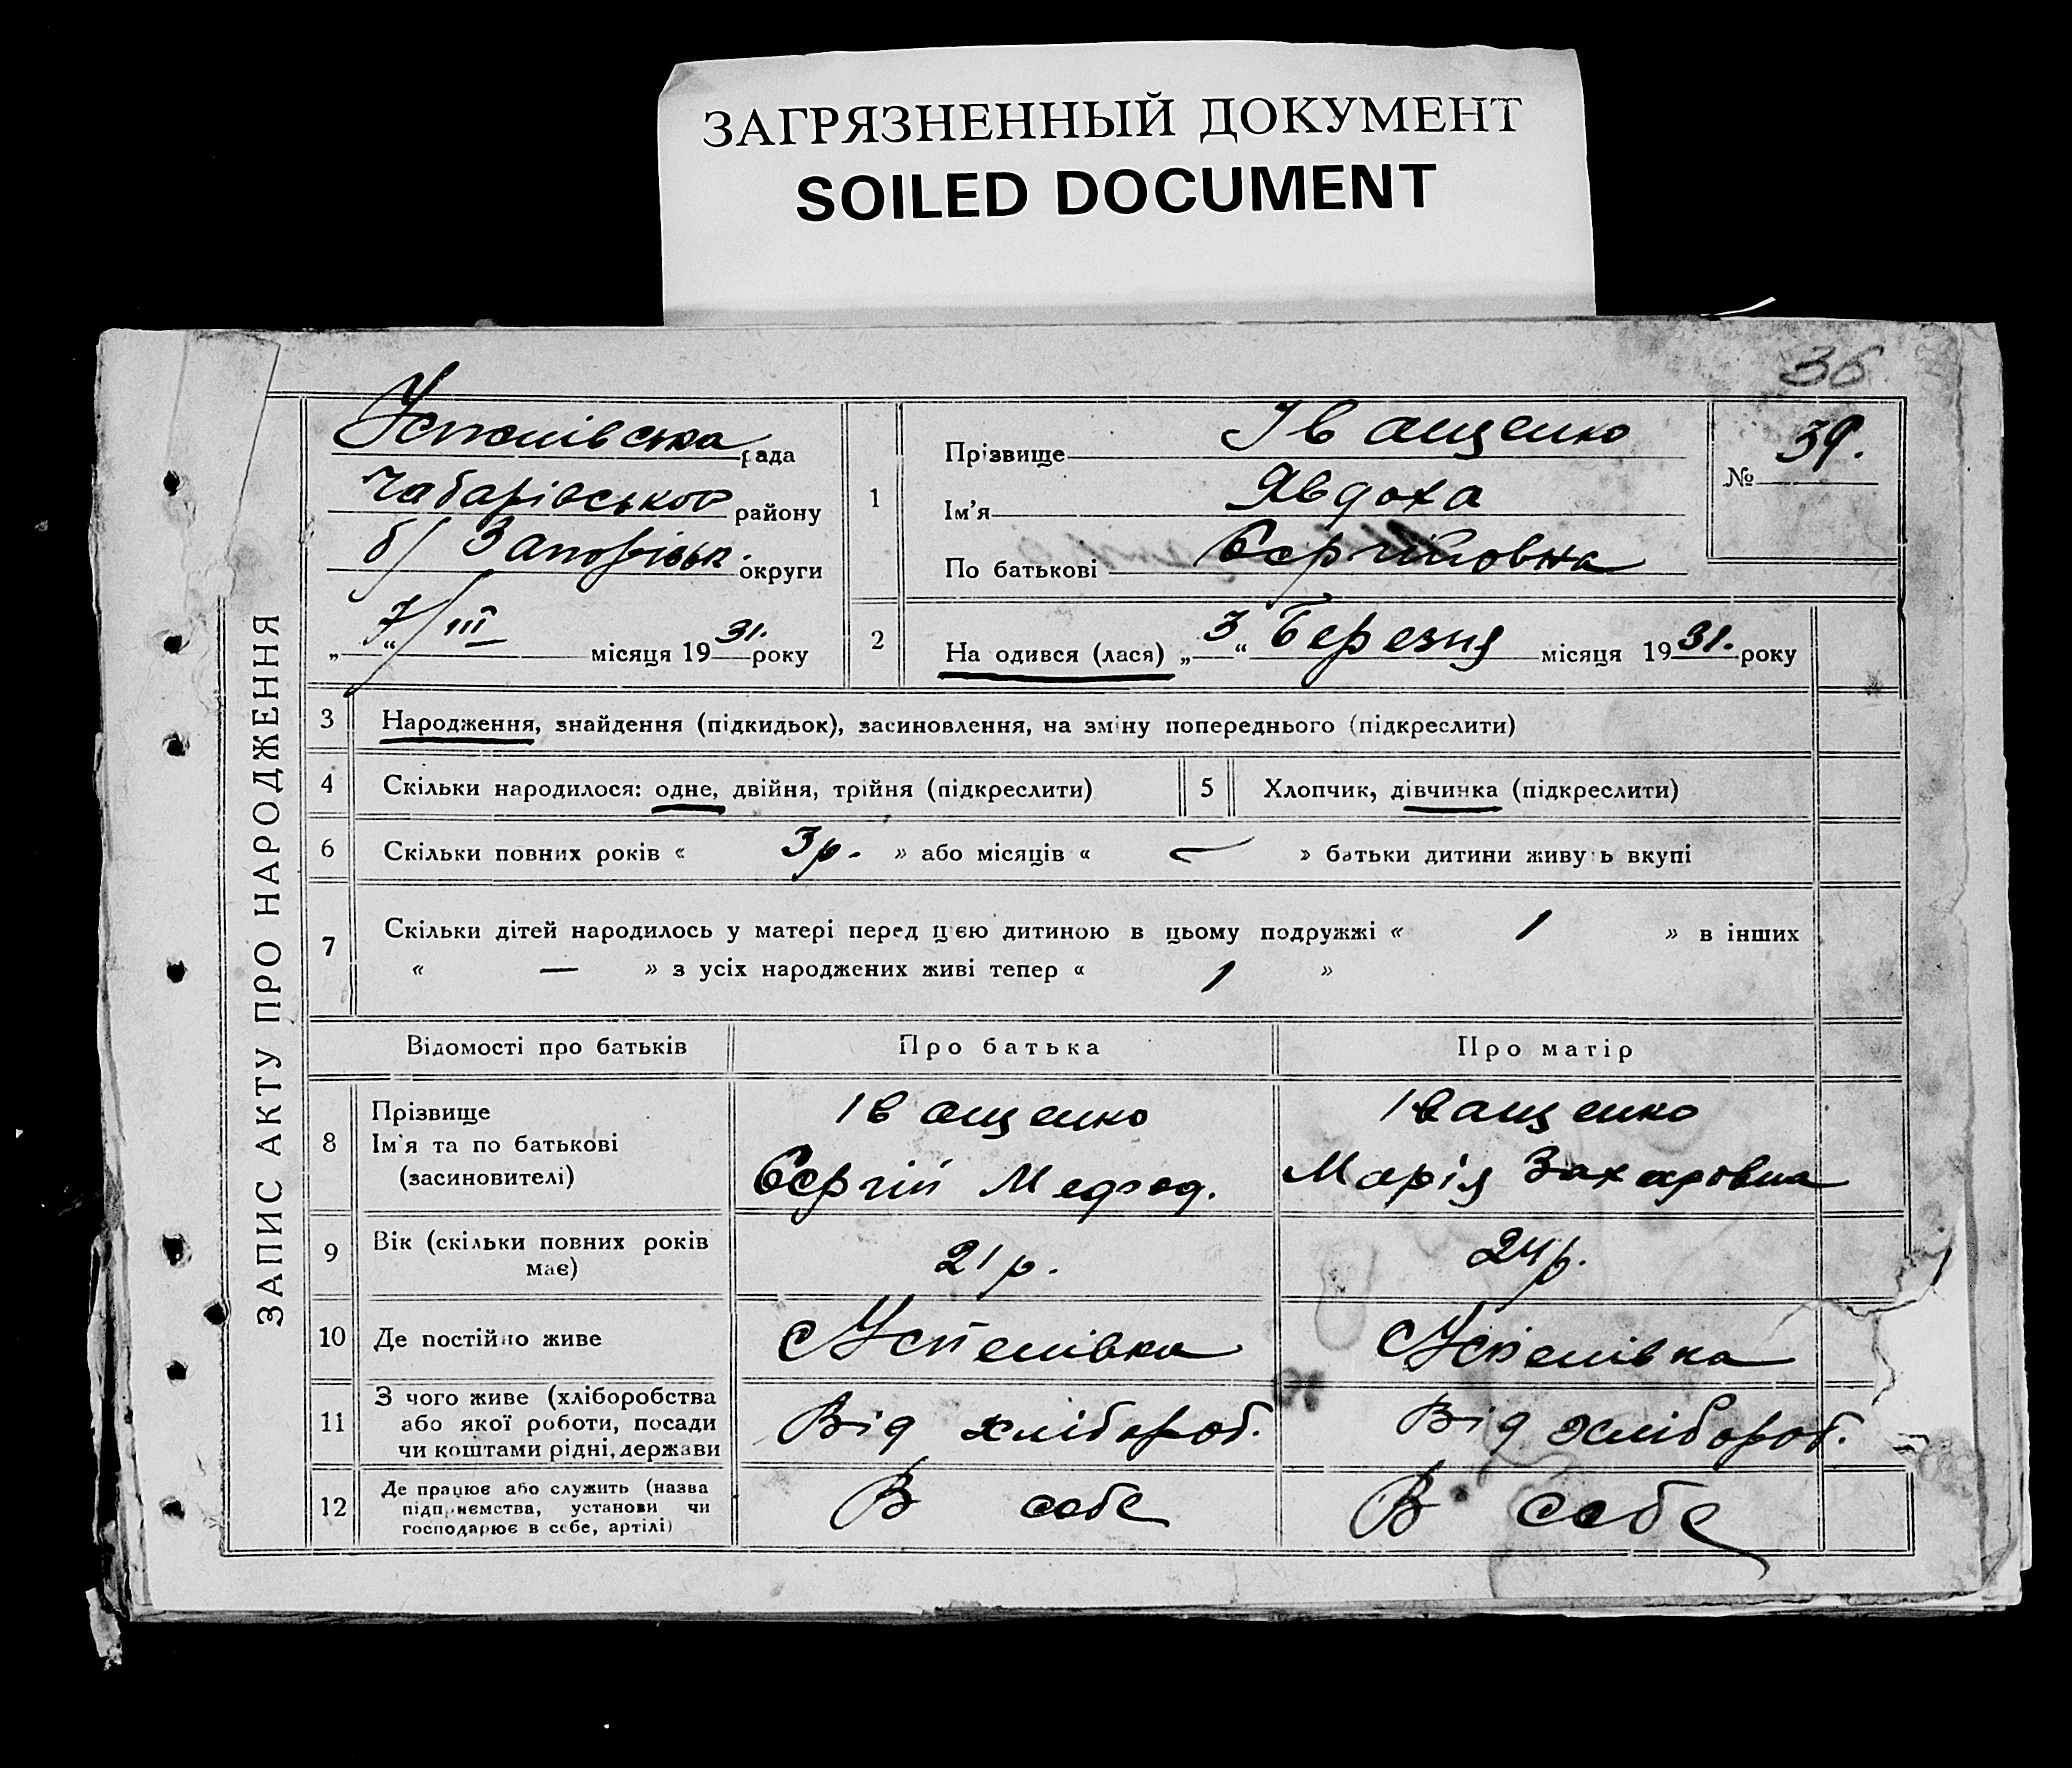 ЗАГРЯЗНЕННЫЙ ДОКУМЕНТ
SOILED DOCUMENT
36
ЗАПИС АКТУ ПРО НАРОДЖЕННЯ
Успенівська рада
Чубарівського району
б/ Запоріськ. округи
„ 7 “ III місяця 1931. року
1
Прізвище Іващенко
Ім'я Явдоха
По батькові Сергійовна
№ 39.
2
На одився (лася) „ 3 “ Березня місяця 1931. року
3 Народження, знайдення (підкидьок), засиновлення, на зміну попереднього (підкреслити)
4 Скільки народилося: одне, двійня, трійня (підкреслити) 5 Хлопчик, дівчинка (підкреслити)
6 Скільки повних років « 3р. » або місяців « — » батьки дитини живуть вкупі
7 Скільки дітей народилось у матері перед цією дитиною в цьому подружжі « 1 » в інших
« — » з усіх народжених живі тепер « 1 »
Відомості про батьків Про батька Про матір
8 Прізвище
Ім'я та по батькові
(засиновителі)
Іващенко
Сергій Мефод.
Іващенко
Марія Захаровна
9 Вік (скільки повних років
має)
21р.
24р.
10 Де постійно живе
с Успенівка
с Успенівка
11 З чого живе (хліборобства
або якої роботи, посади
чи коштами рідні, держави
Від хлібороб.
Від хлібороб.
12 Де працює або служить (назва
підприємства, установи чи
господарює в себе, артілі)
В себе
В себе